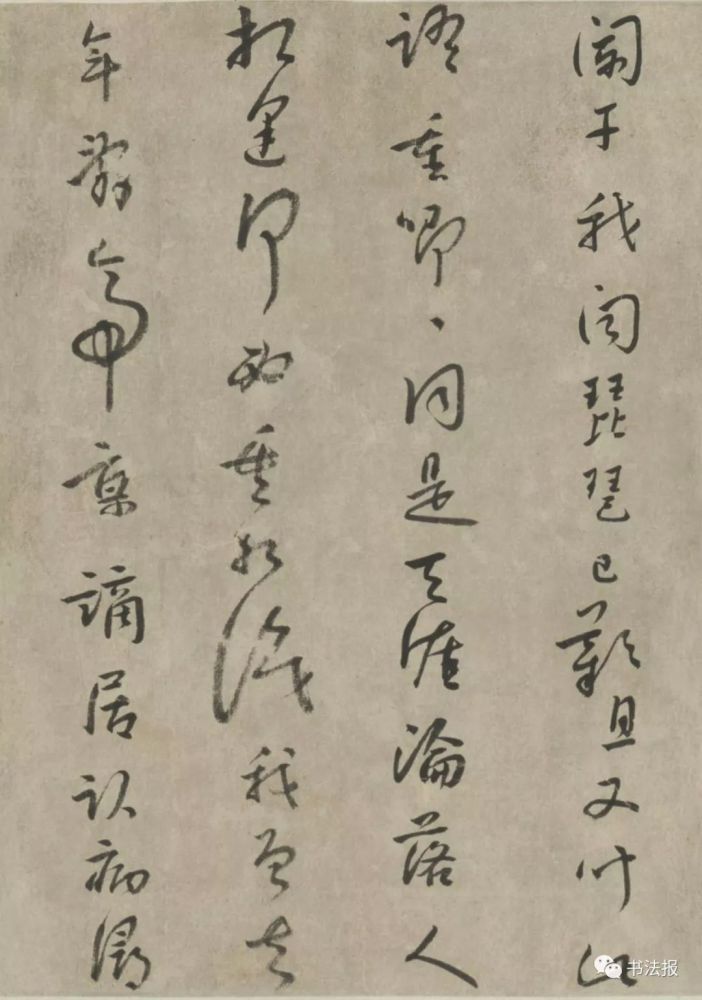 闌干我聞琵琶已歎息又此
語重唧、同是天涯淪落人
相逢何必相識我去
年辭帝京謫居臥病潯
书法报